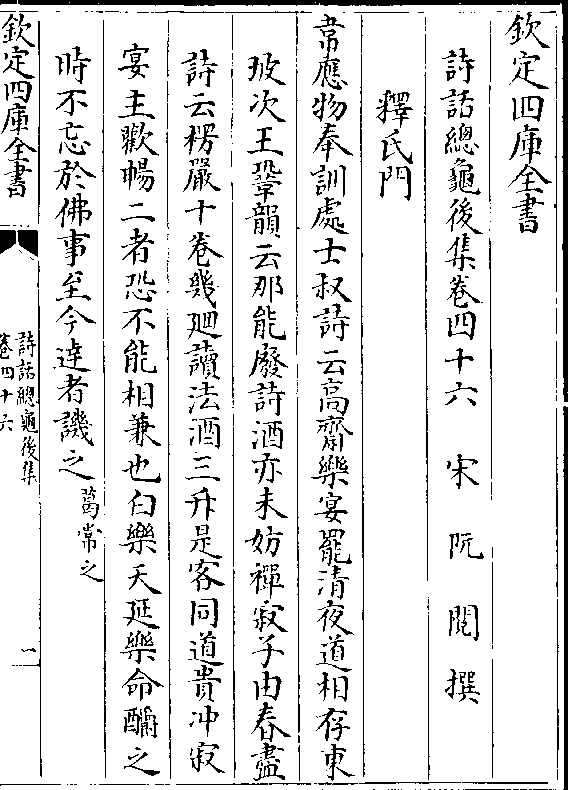 欽定四庫全書
詩話總龜後集卷四十六　宋　阮　閱　撰
釋氏門
韋應物奉訓處士叔詩云高齋樂宴罷清夜道相存東
坡次王鞏韻云那能廢詩酒亦未妨禪寂子由春盡
詩云楞嚴十卷幾廻讀法酒三升是客同道貴沖寂
宴主歡暢二者恐不能相兼也白樂天延樂命酺之
時不忘於佛事至今達者譏之葛常之
欽定四庫全書
詩話總龜後集
卷四十六
一